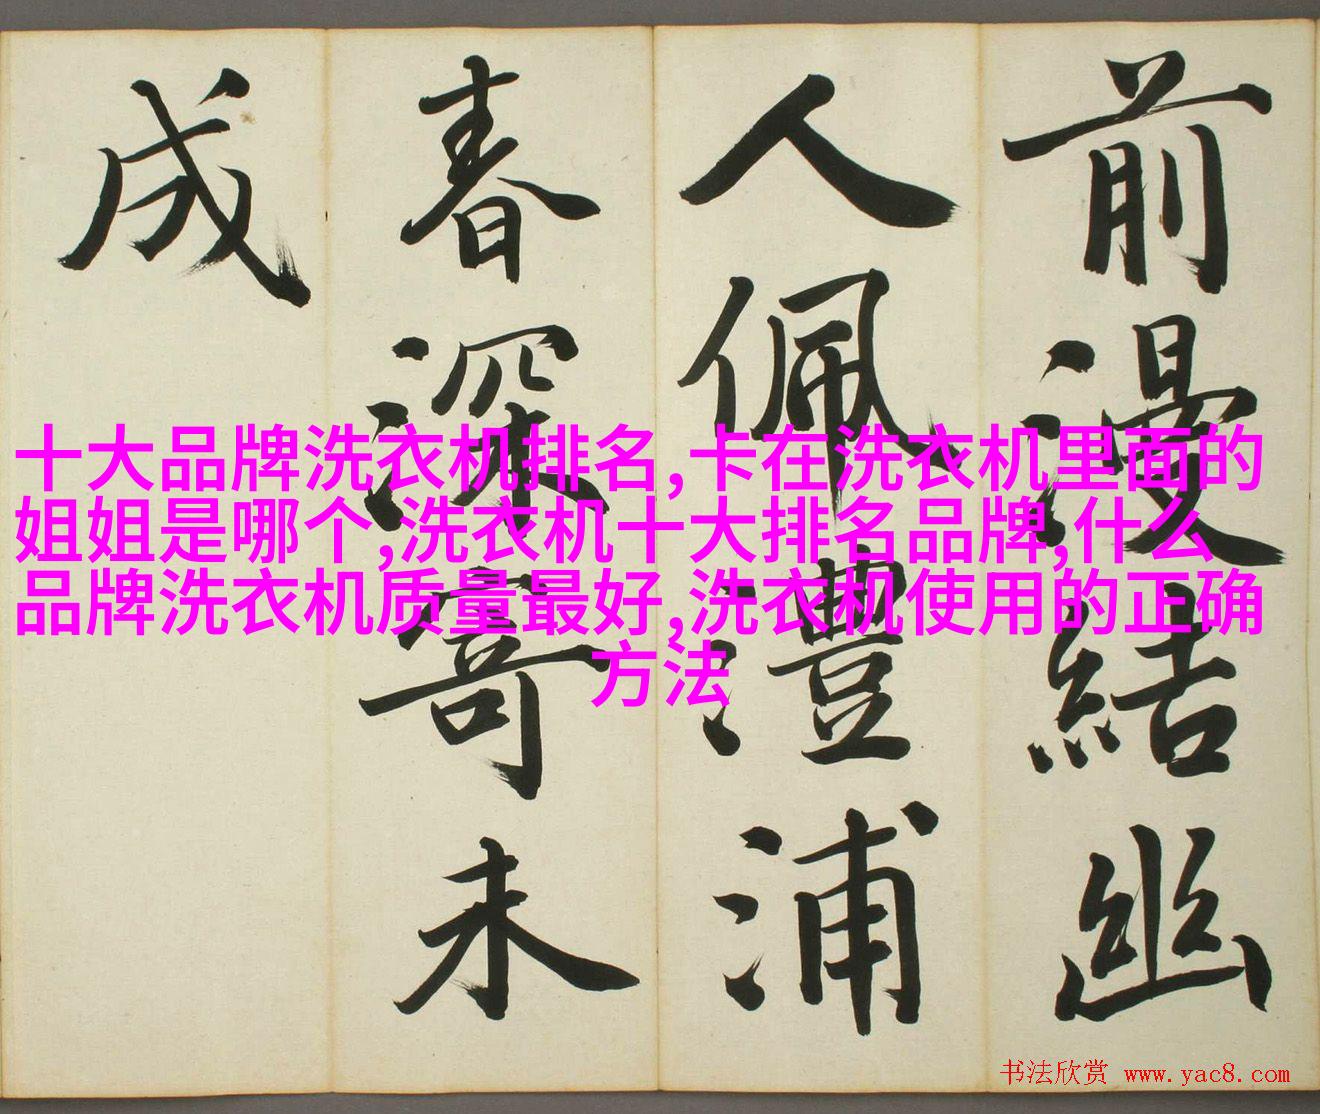 前漫結幽
人佩澧浦
春深寄未
成
十大品牌洗衣机排名,卡在洗衣机里面的
姐姐是哪个,洗衣机十大排名品牌,什么
品牌洗衣机质量最好,洗衣机使用的正确
方法
书法欣赏 www.yac8.com